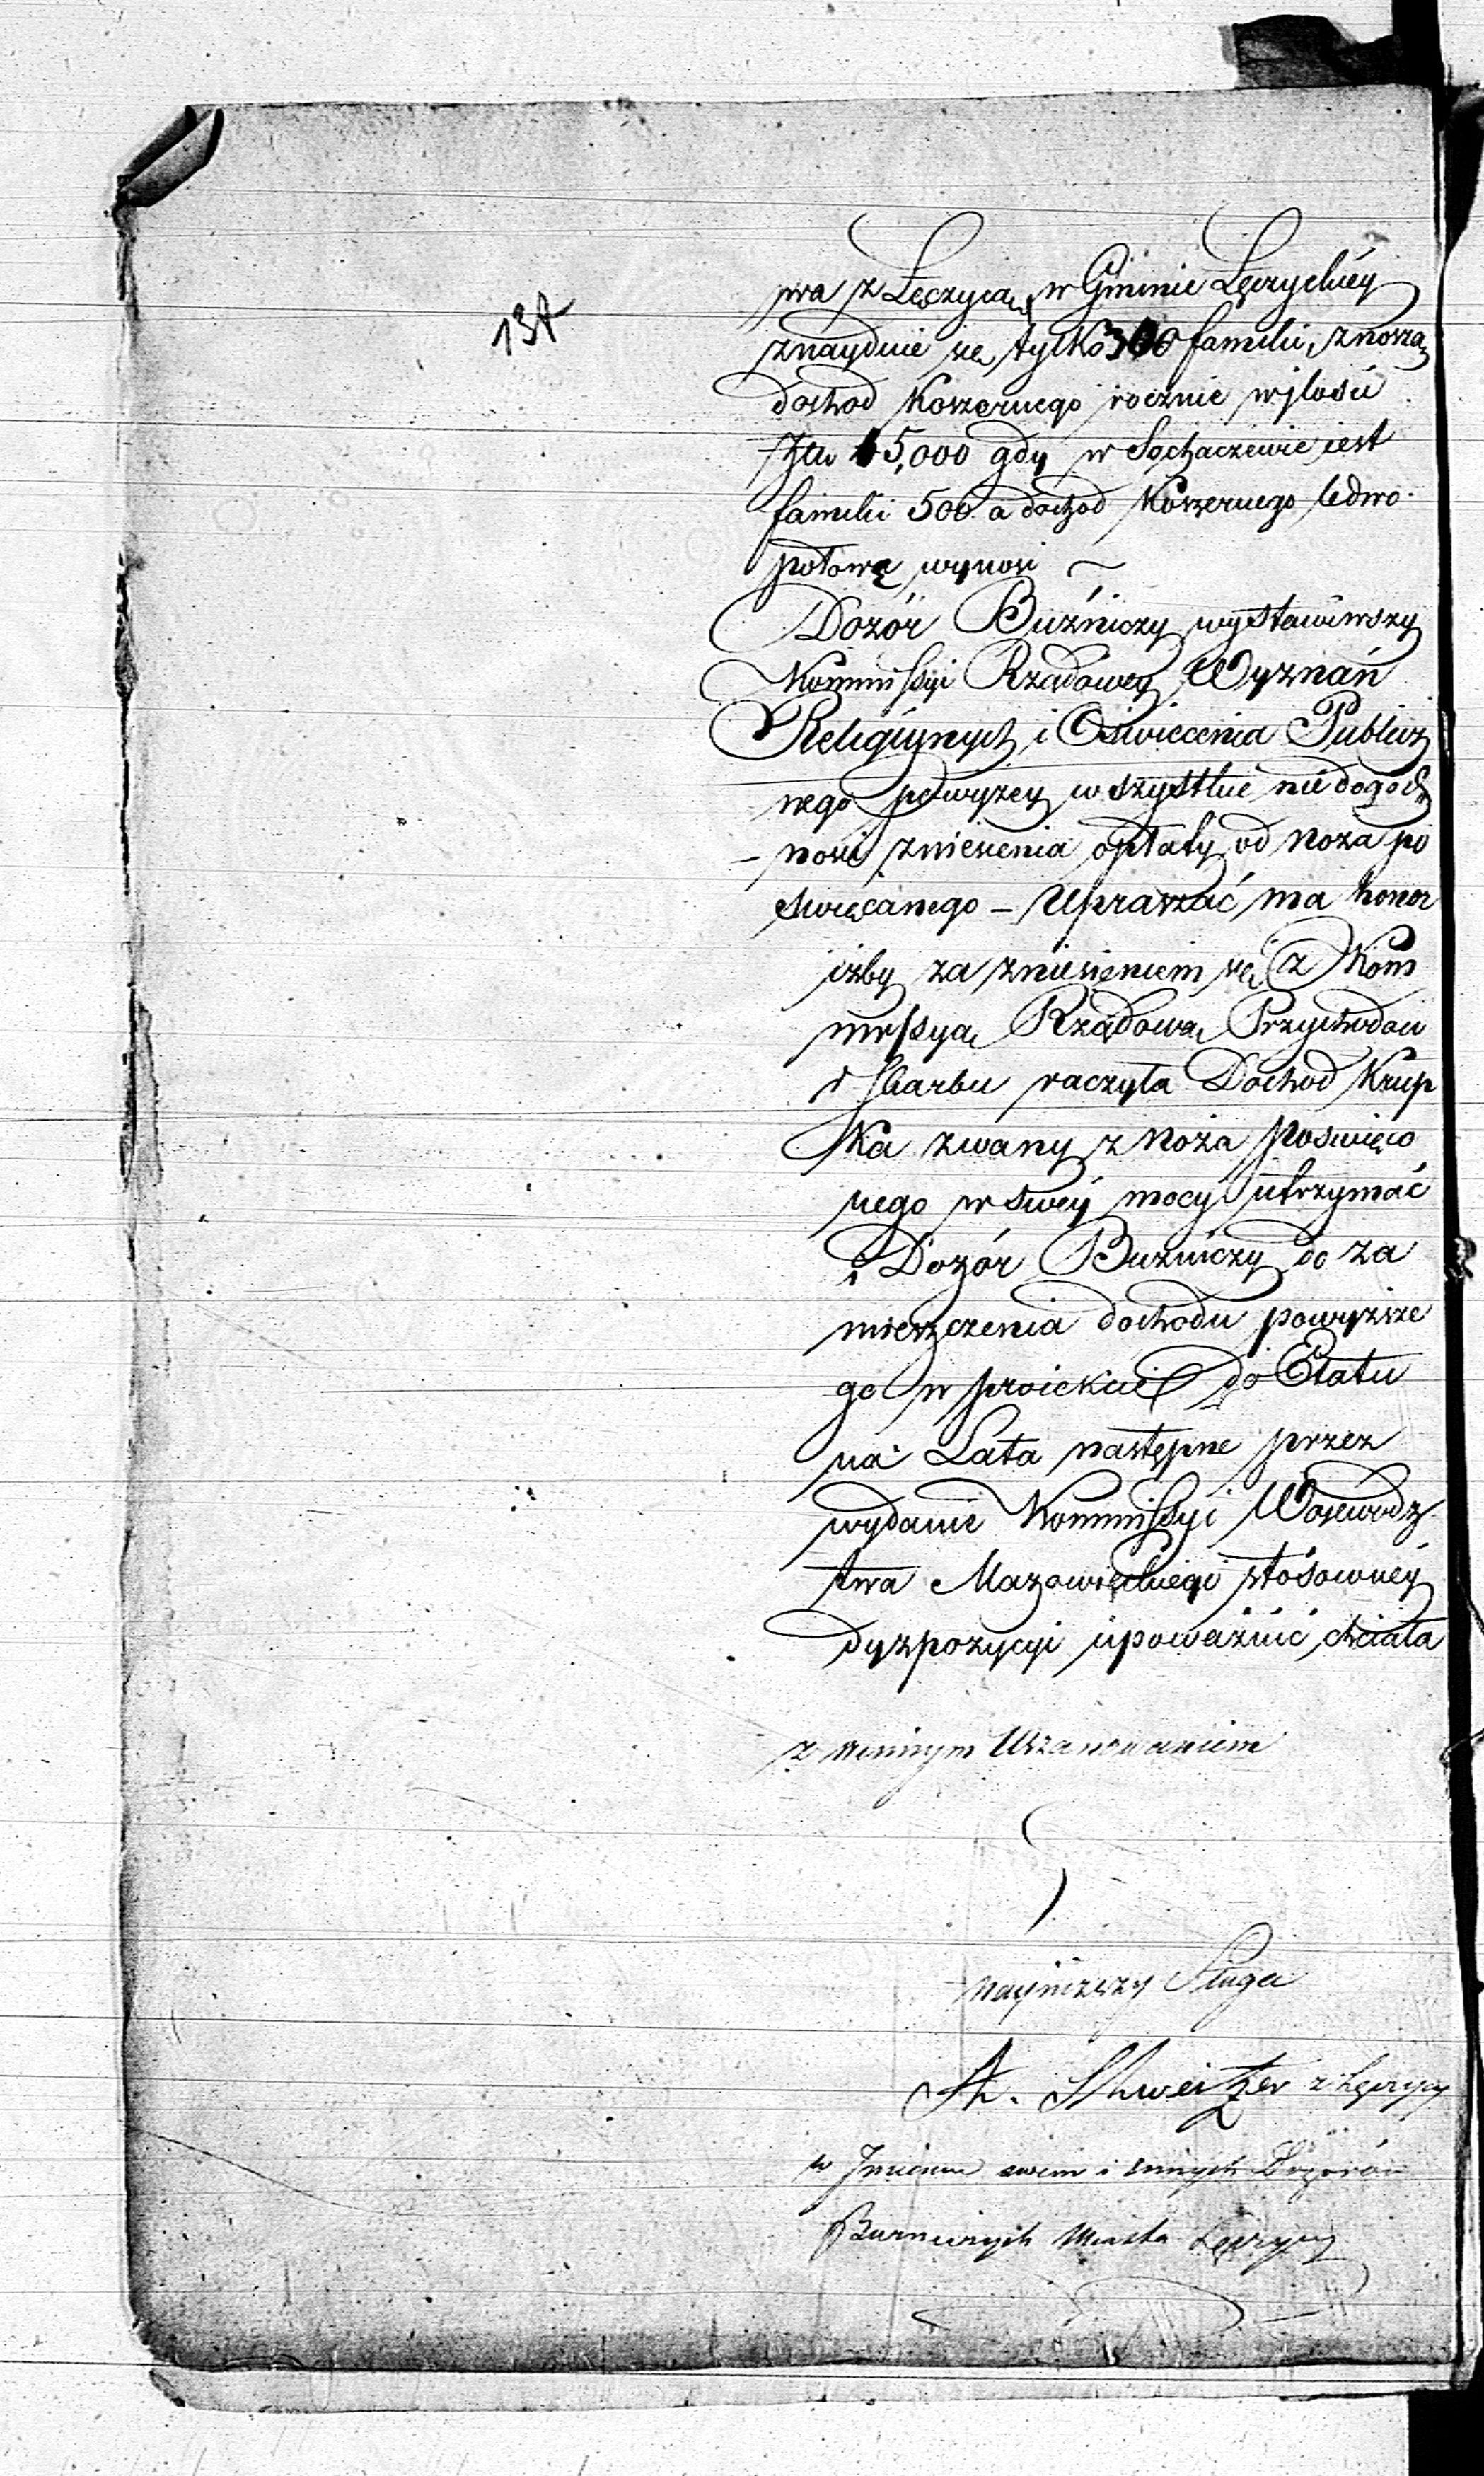 137
wa z Łęczycą, w Gminie Łęczyckiéy
znayduie się tylko 300 familii, znoszą
dochod Koszernego rocznie w jlosci
Złp 15,000 gdy w Sochaczewie jest
familii 500 a dochod Koszernego ledwo
połowę wynosi ~
Dozór Buźniczy wystawiwszy
Kommissyi Rządowey Wyznań
Religiynych i Oswiecenia Publicz
nego powyzey wszystkie niedogod
- nosci zniesienia opłaty od noza po
swięcanego – Upraszać ma honor
izby za zniesieniem się z Kom
missyą Rządową Przychodow
i Skarbu raczyła Dochod Krup
ka zwany z noża poswięco
nego w swéy mocy utrzymać
i Dozór Buzniczy do za
mieszczenia dochodu powyzsze
go w proiekcie do Etatu
na Lata następne przez
wydanie Kommissyi Woiewodz
twa Mazowieckiego stósownéy
dyzpozycyi upoważnić chciała
z winnym Uszanowaniem
Nayniższy Sługa
Schweitzer z Łęczycy
w Jmieniu swem i innych Dozorów
Buzniczych Miasta Łęczycy